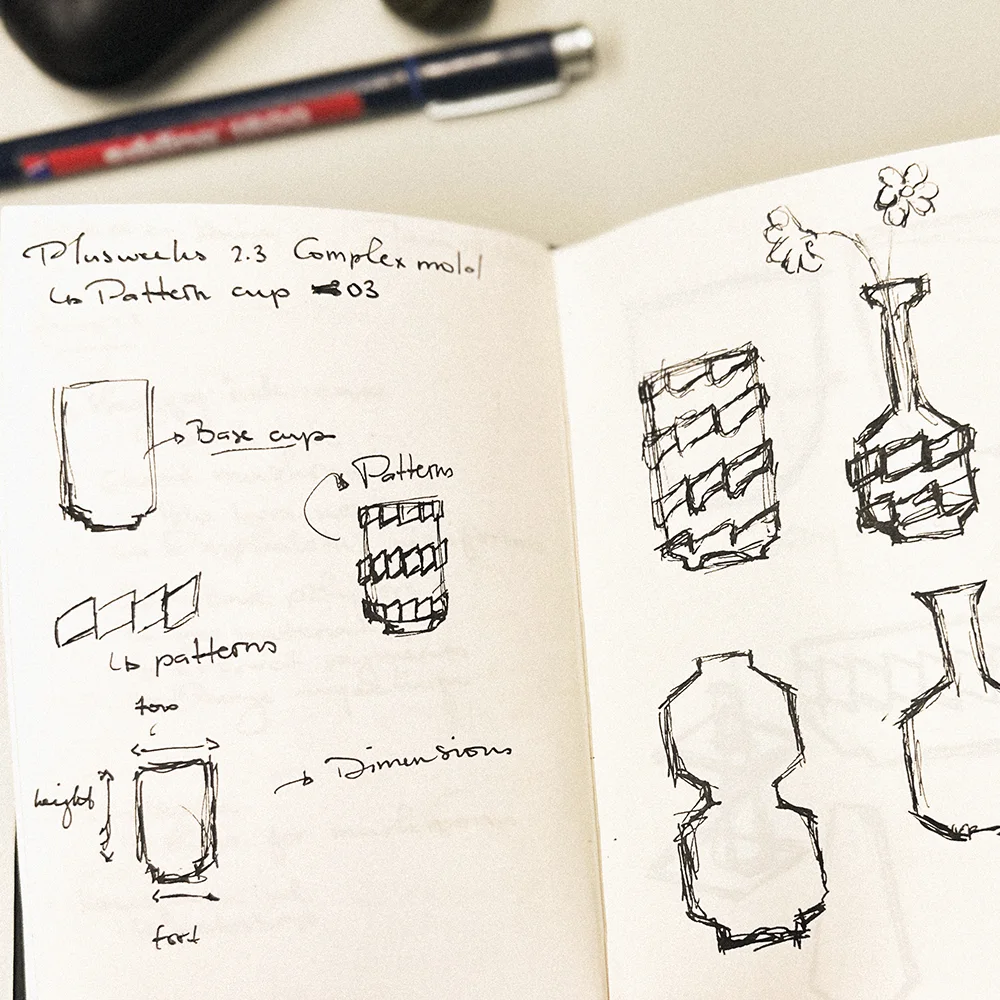 edding 1800
Plusweeks 2.3 Complex mold
↳ Pattern cup 03
Base cup
Patterns
↳ patterns
height
→ Dimensions
foot